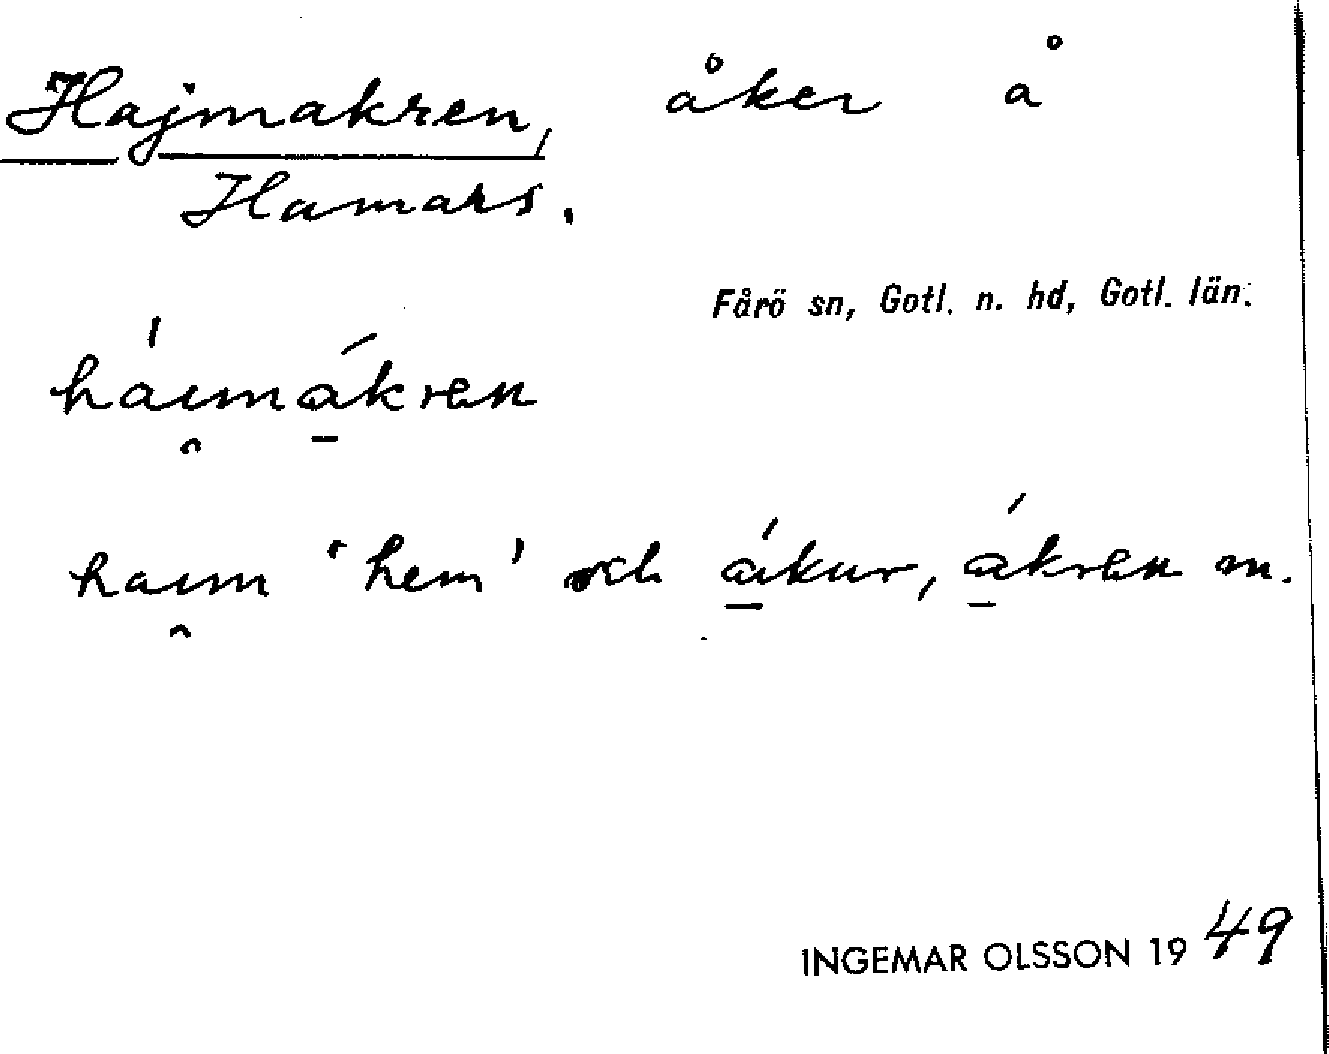 Hajmakren, åker å
Hamars.
Fårö sn, Gotl. n. hd, Gotl. län.
háımákren
haım 'hem' och ákur, ákren m.
INGEMAR OLSSON 1949